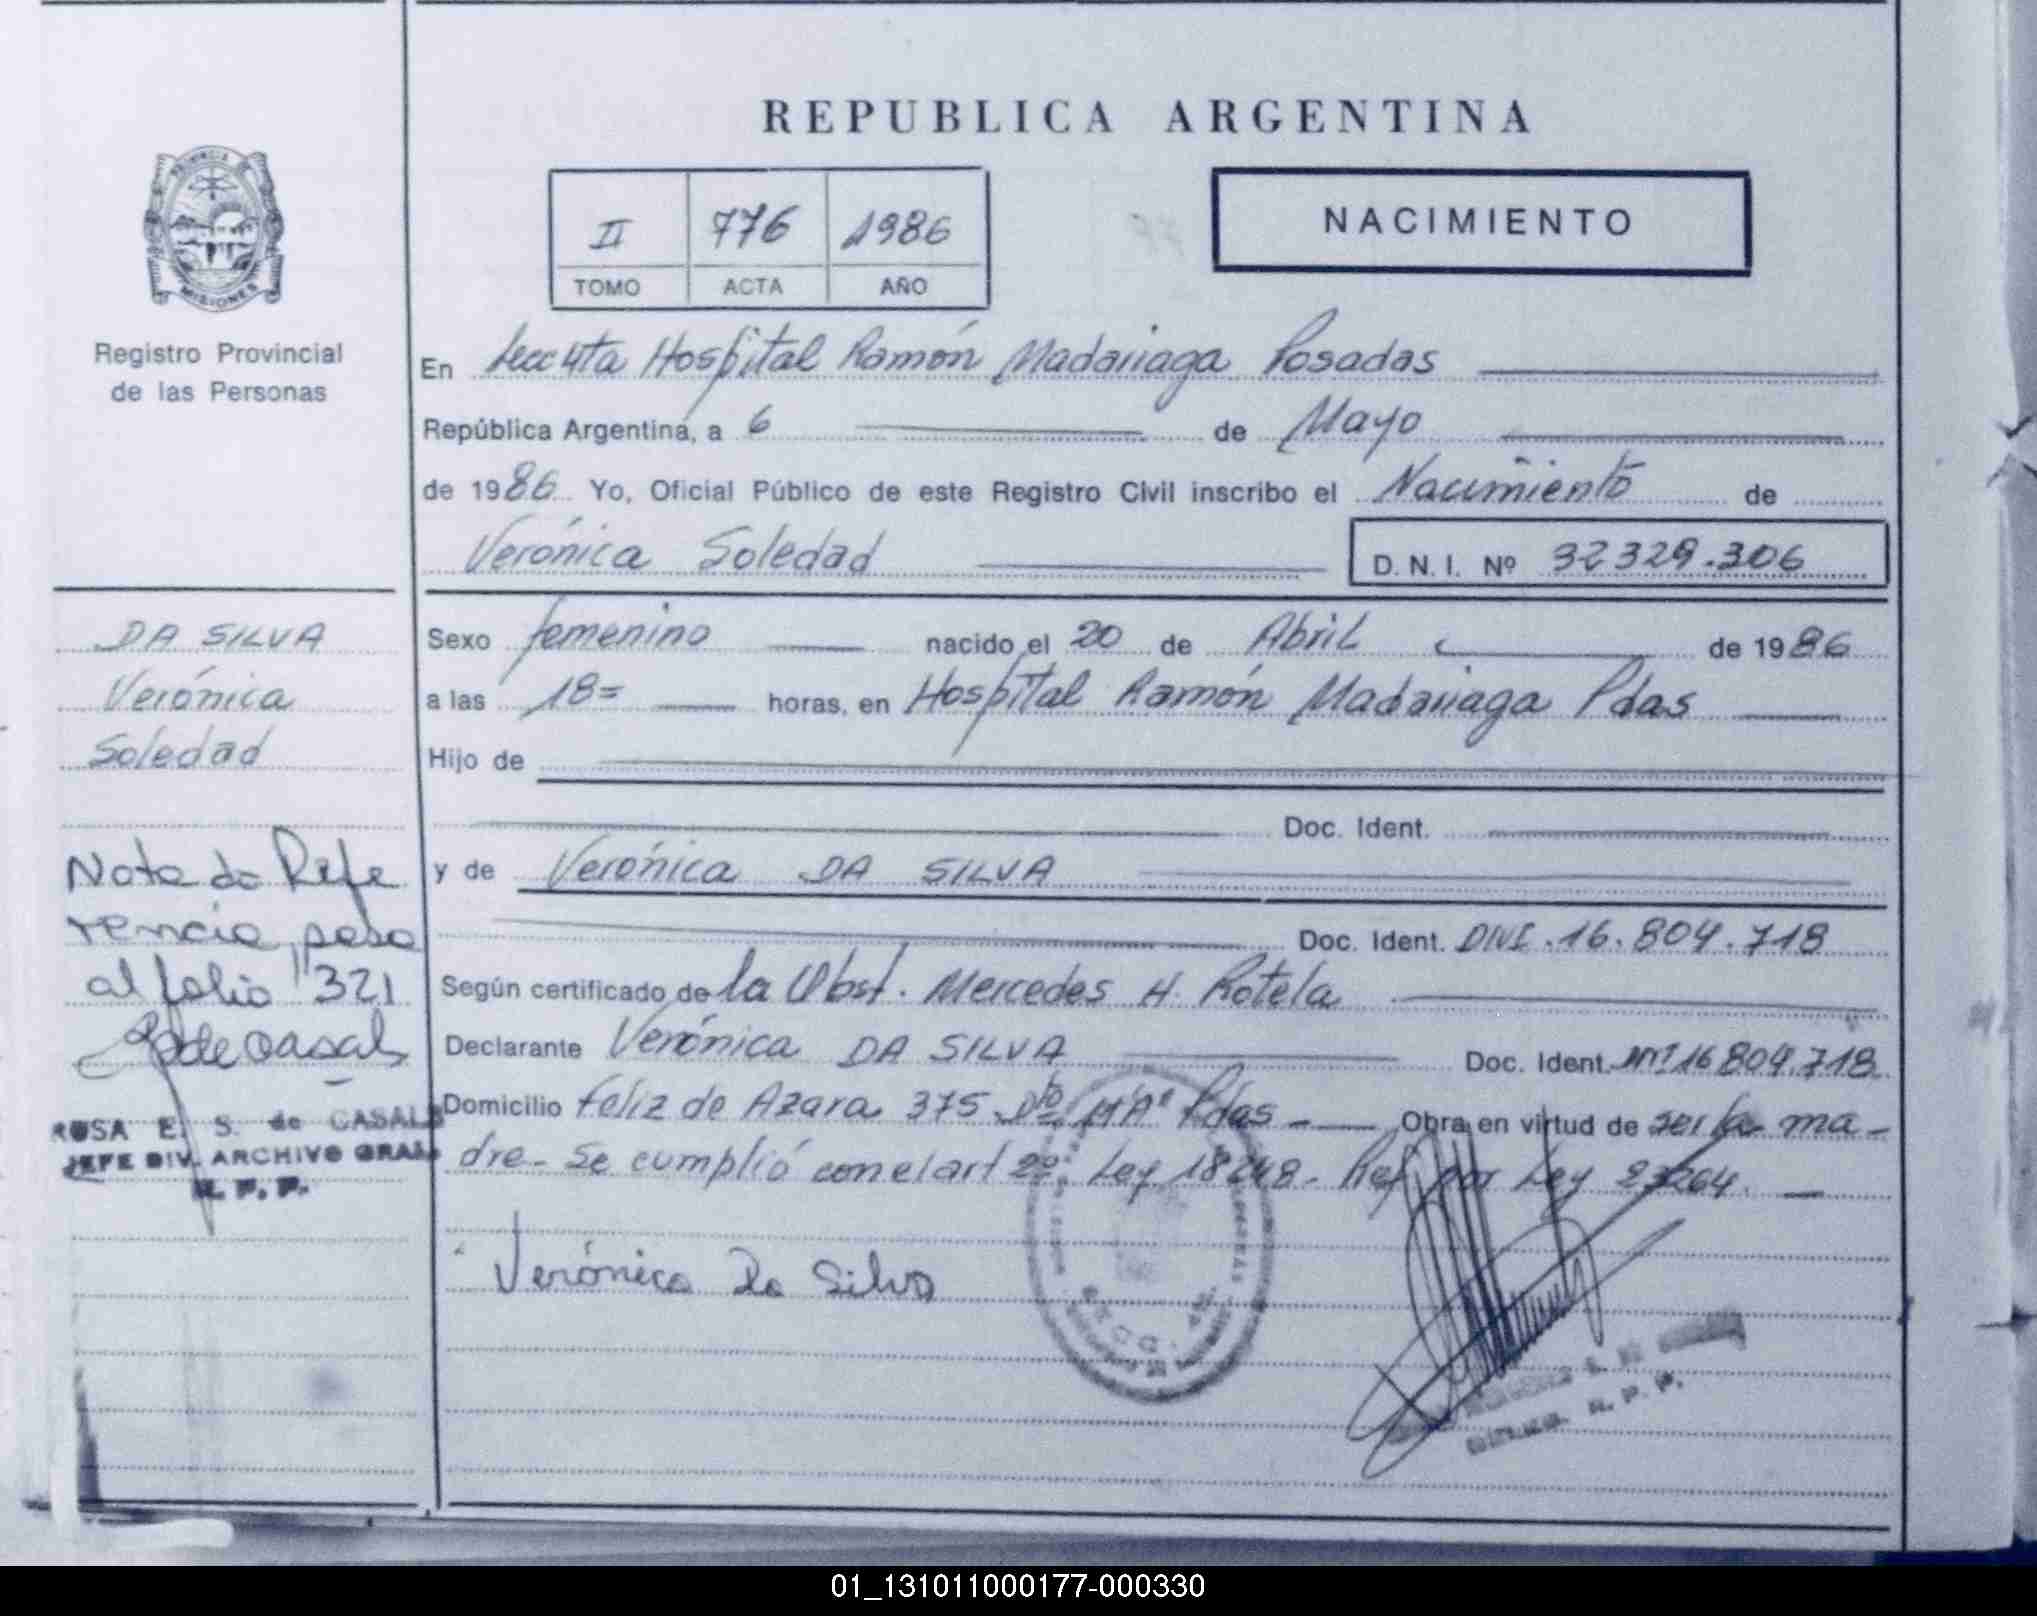 REPUBLICA ARGENTINA
PROVINCIA DE
MISIONES
Registro Provincial
de las Personas
II 776 1986
TOMO ACTA AÑO
NACIMIENTO
En Secc 4ta Hospital Ramón Madariaga Posadas
República Argentina, a 6 de Mayo
de 1986 Yo, Oficial Público de este Registro Civil inscribo el Nacimiento de
Verónica Soledad D.N.I. Nº 32329.306
Sexo femenino nacido el 20 de Abril de 1986
a las 18= horas, en Hospital Ramón Madariaga Pdas
Hijo de
Doc. Ident.
y de Verónica DA SILVA
Doc. Ident. DNI.16.804.718
Según certificado de la Obst. Mercedes H. Rotela
Declarante Verónica DA SILVA Doc. Ident. DNI 16804.718
Domicilio Feliz de Azara 375 Pdas Obra en virtud de ser la ma-
dre- Se cumplió con el art 2º Ley 18248- Ref por Ley 23264.
Verónica Da Silva
R. P. P.
DA SILVA
Verónica
Soledad
Nota de Refe
rencia, pasa
al folio 321
de Casals
ROSA E. S. de CASALS
JEFE DIV. ARCHIVO GRAL
R. P. P.
01_131011000177-000330